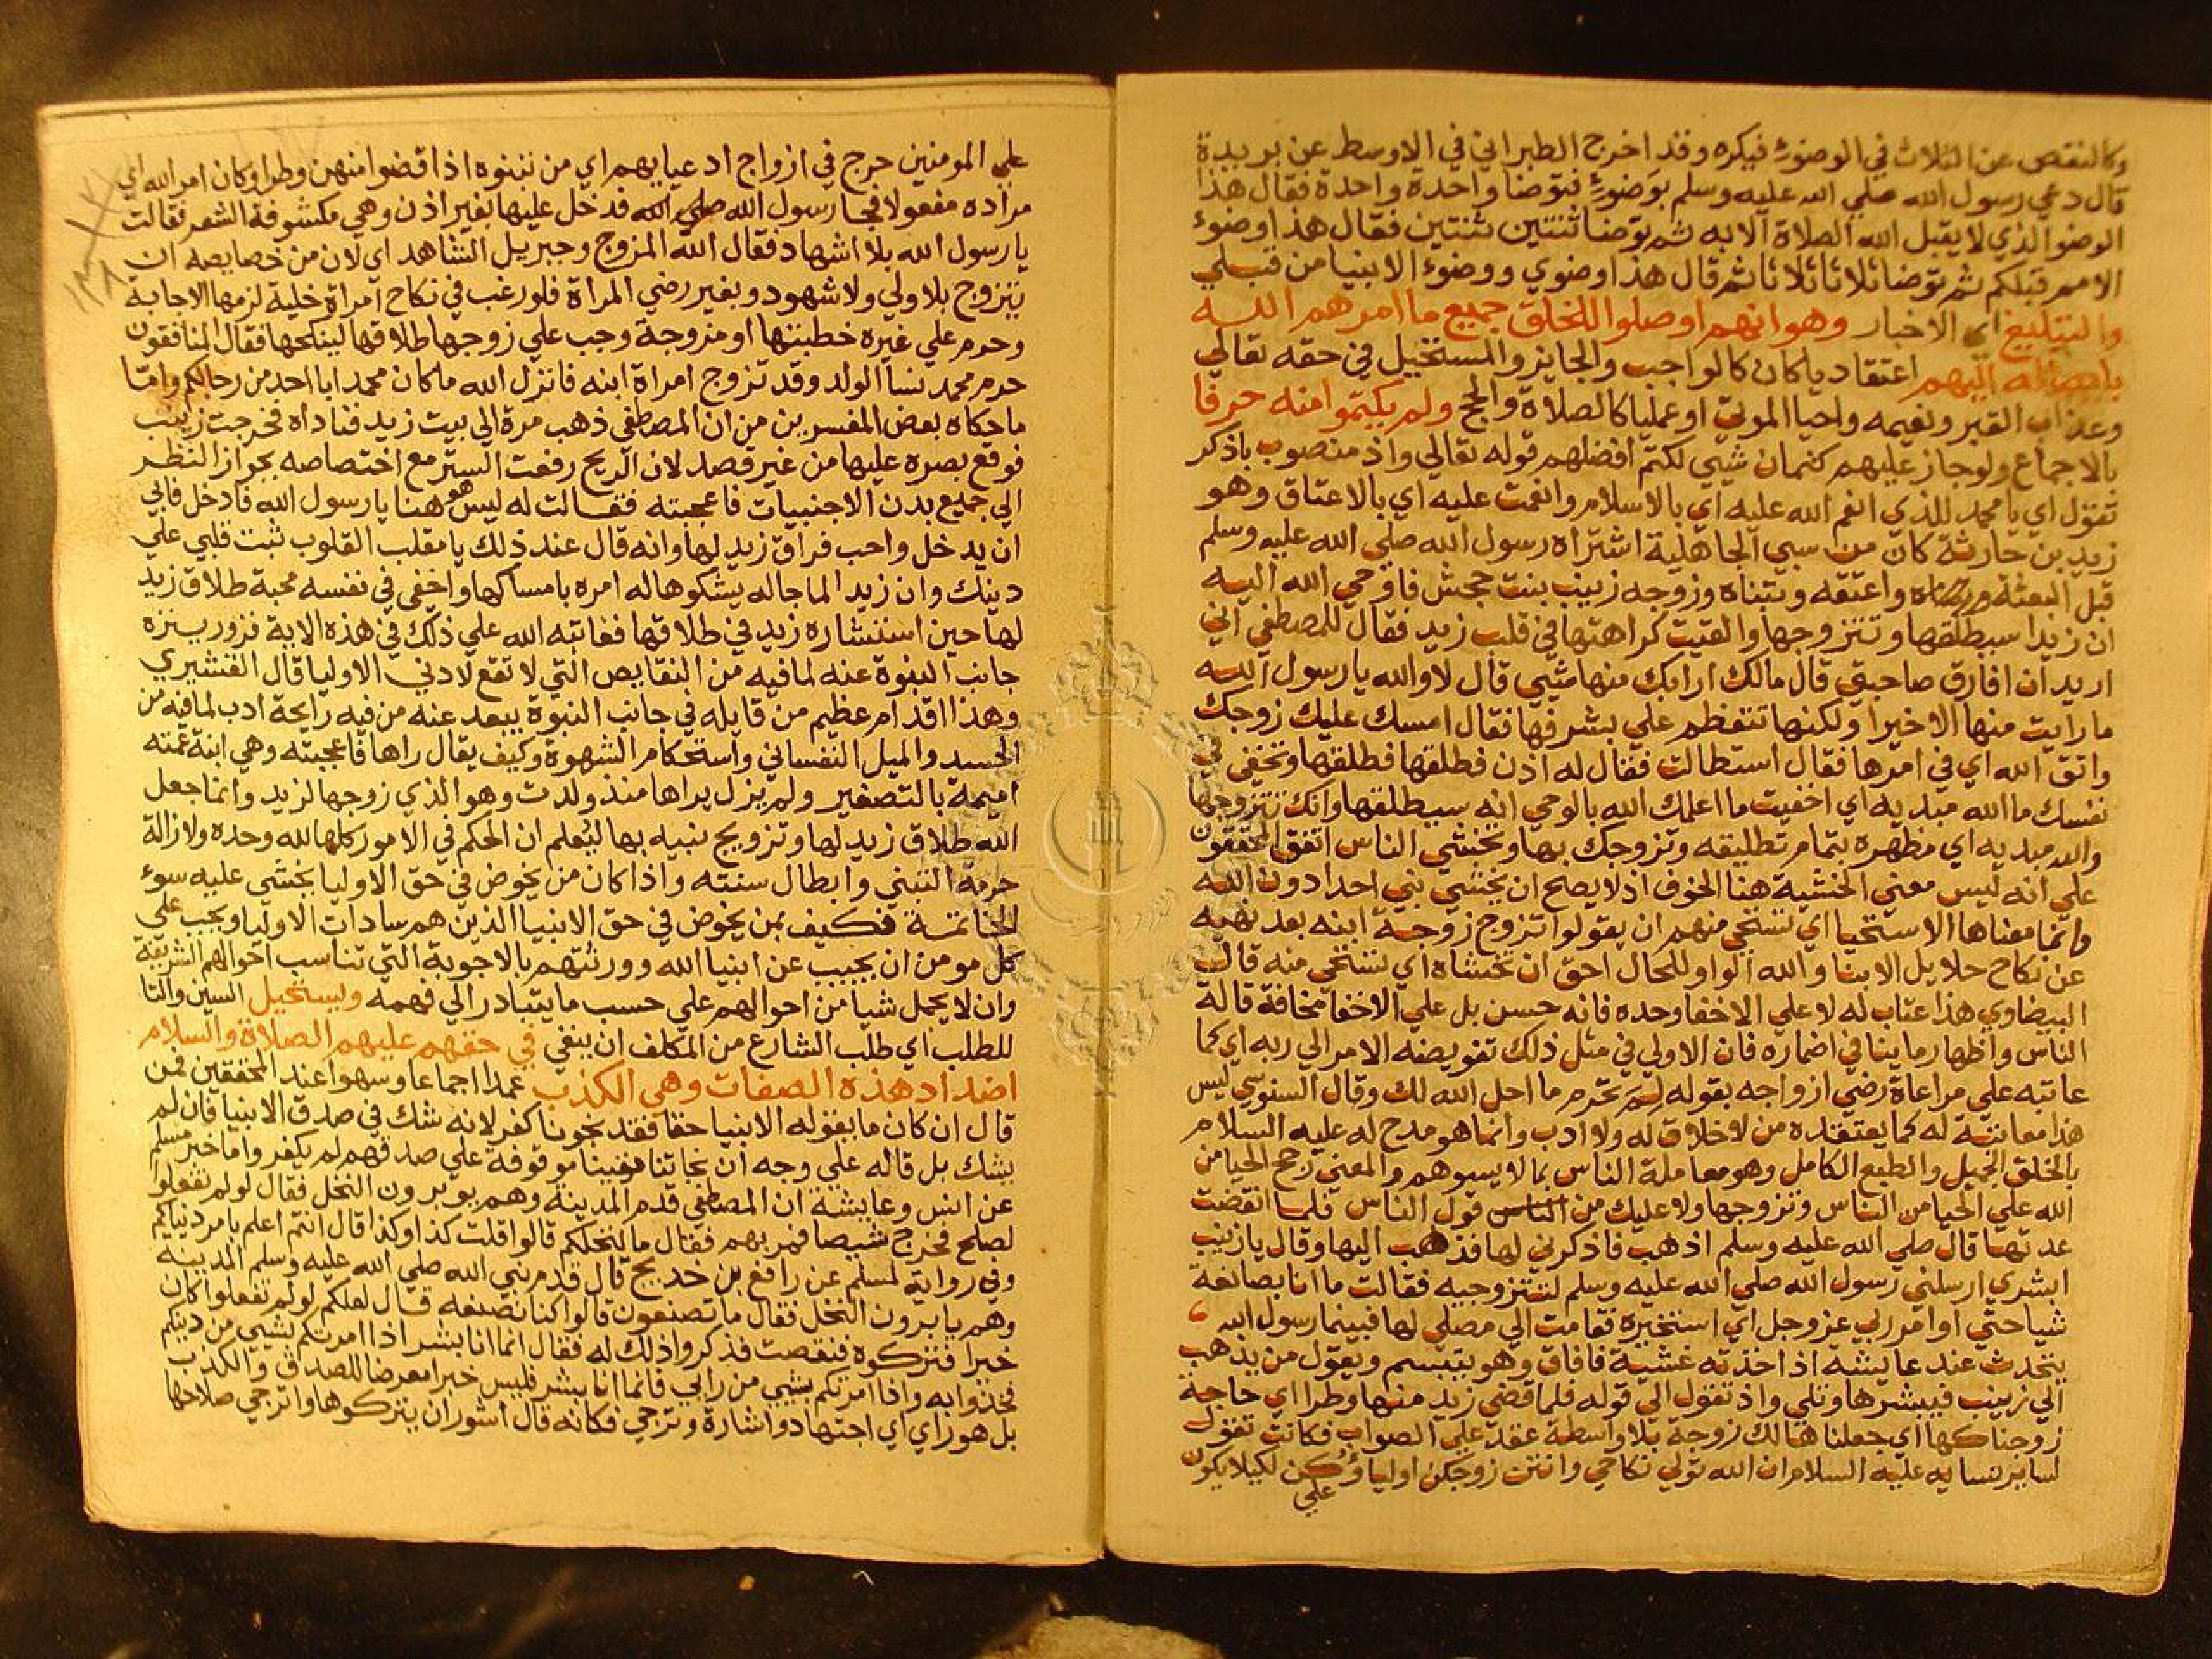 وكالنقص عن الثلاث في الوضوء فيكره وقد اخرج الطبراني في الاوسط عن بريدة
قال دعي رسول الله صلي الله عليه وسلم بوضوء فتوضا واحدة واحدة فقال هذا
الوضو الذي لا يقبل الله الصلاة الا به ثم توضا ثنتين ثنتين فقال هذا وضوء
الامم قبلكم ثم توضا ثلاثا ثلاثا ثم قال هذا وضوي ووضوء الانبيا من قبلي
والتبليغ اي الاخبار وهو انهم اوصلوا للخلق جميع ما امرهم الله
بايصاله اليهم اعتقاديا كان كالواجب والجايز والمستحيل في حقه تعالي
وعذاب القبر ونعيمه واحيا الموتي او عمليا كالصلاة والحج ولم يكتموا منه حرفا
بالاجماع ولو جاز عليهم كتمان شيي لكتم افضلهم قوله تعالي واذ منصوب باذكر
تقول اي يا محمد للذي انعم الله عليه اي بالاسلام وانعمت عليه اي بالاعتاق وهو
زيد بن حارثة كان من سبي الجاهلية اشتراه رسول الله صلي الله عليه وسلم
قبل البعثة واعتقه وتبناه وزوجه زينب بنت جحش فاوحي الله اليه
ان زيدا سيطلقها وتتزوجها والقيت كراهتها في قلب زيد فقال للمصطفي اني
اريد ان افارق صاحبتي قال مالك ارابك منها شيي قال لا والله يا رسول الله
ما رايت منها الا خيرا ولكنها تتعظم علي بشرفها فقال امسك عليك زوجك
واتق الله اي في امرها فقال استطالت فقال له اذن فطلقها فطلقها وتخفي في
نفسك ما الله مبديه اي اخفيت ما اعلمك الله بالوحي انه سيطلقها وانك تتزوجها
والله مبديه اي مظهره بتمام تطليقه وتزوجك بها وتخشي الناس اتفق المحققون
علي انه ليس معني الخشية هنا الخوف اذ لا يصح ان يخشي نبي احدا دون الله
وانما معناها الاستحيا اي تستحي منهم ان يقولوا تزوج زوجة ابنه بعد نهيه
عن نكاح حلايل الابنا والله الواو للحال احق ان تخشاه اي تستحي منه قال
البيضاوي هذا عتاب له لا علي الاخفا وحده فانه حسن بل علي الاخفا مخافة قالة
الناس واظهار ما ينافي اضماره فان الاولي في مثل ذلك تفويضه الامر الي ربه اي كما
عاتبه علي مراعاة رضي ازواجه بقوله لم تحرم ما احل الله لك وقال السنوسي ليس
هذا معاتبة له كما يعتقده من لا خلاق له ولا ادب وانما هو مدح له عليه السلام
بالخلق الجميل والطبع الكامل وهو معاملة الناس بما لا يسوهم والمعني رجح الحيا من
الله علي الحيا من الناس وتزوجها ولا عليك من قول الناس فلما انقضت
عدتها قال صلي الله عليه وسلم اذهب فاذكرني لها فذهب اليها وقال يا زينب
ابشري ارسلني رسول الله صلي الله عليه وسلم لتتزوجيه فقالت ما انا بصانعة
شيا حتي اوامر ربي عز وجل اي استخيره فقامت الي مصلي لها فبينما رسول الله
يتحدث عند عايشة اذ اخذته غشية فافاق وهو يتبسم ويقول من يذهب
الي زينب فيبشرها وتلي واذ تقول الي قوله فلما قضي زيد منها وطرا اي حاجة
زوجناكها اي جعلناها لك زوجة بلا واسطة عقد علي الصواب فكانت تقول
لساير نسايه عليه السلام ان الله تولي نكاحي وانتن زوجكن اولياوكن لكيلا يكون
علي
علي المومنين حرج في ازواج ادعيايهم اي من تبنوه اذا قضوا منهن وطرا وكان امر الله اي
مراده مفعولا فجا رسول الله صلي الله فدخل عليها بغير اذن وهي مكشوفة الشعر فقالت
يا رسول الله بلا اشهاد فقال الله المزوج وجبريل الشاهد اي لان من خصايصه ان
يتزوج بلا ولي ولا شهود وبغير رضي المراة فلو رغب في نكاح امراة خلية لزمها الاجابة
وحرم علي غيره خطبتها او مزوجة وجب علي زوجها طلاقها لينكحها فقال المنافقون
حرم محمد نسا الولد وقد تزوج امراة ابنه فانزل الله ما كان محمد ابا احد من رجالكم واما
ما حكاه بعض المفسرين من ان المصطفي ذهب مرة الي بيت زيد فناداه فخرجت زينب
فوقع بصره عليها من غير قصد لان الريح رفعت الستر مع اختصاصه بجواز النظر
الي جميع بدن الاجنبيات فاعجبته فقالت له ليس هو هنا يا رسول الله فادخل فابي
ان يدخل واحب فراق زيد لها وانه قال عند ذلك يا مقلب القلوب ثبت قلبي علي
دينك وان زيدا لما جا له يشكوها له امره بامساكها واخفي في نفسه محبة طلاق زيد
لها حين استشاره زيد في طلاقها فعاتبه الله علي ذلك في هذه الاية فزور ينزه
جانب النبوة عنه لما فيه من النقايص التي لا تقع لادني الاوليا قال القشيري
وهذا اقدام عظيم من قايله في جانب النبوة يبعد عنه من فيه رايحة ادب لما فيه من
الحسد والميل النفساني واستحكام الشهوة وكيف يقال راها فاعجبته وهي ابنة عمته
اميمة بالتصغير ولم يزل يراها منذ ولدت وهو الذي زوجها لزيد وانما جعل
الله طلاق زيد لها وتزويج نبيه بها ليعلم ان الحكم في الامور كلها لله وحده ولازالة
حرمة التبني وابطال سنته واذا كان من يخوض في حق الاوليا يخشي عليه سوء
الخاتمة فكيف بمن يخوض في حق الانبيا الذين هم سادات الاوليا ويجب علي
كل مومن ان يجيب عن انبيا الله وورثتهم بالاجوبة التي تناسب احوالهم الشريفة
وان لا يحمل شيا من احوالهم علي حسب ما يتبادر الي فهمه ويستحيل السين والتا
للطلب اي طلب الشارع من المكلف ان ينفي في حقهم عليهم الصلاة والسلام
اضداد هذه الصفات وهي الكذب عمدا اجماعا وسهوا عند المحققين فمن
قال ان كان ما يقوله الانبيا حقا فقد نجونا كفر لانه شك في صدق الانبيا فان لم
يشك بل قاله علي وجه ان نجاتنا موقوفة علي صدقهم لم يكفر واما خبر مسلم
عن انس وعايشة ان المصطفي قدم المدينة وهم يوبرون النخل فقال لو لم تفعلوا
لصلح فخرج شيصا فمر بهم فقال ما لنخلكم قالوا قلت كذا وكذا قال انتم اعلم بامر دنياكم
وفي رواية لمسلم عن رافع بن خديج قال قدم نبي الله صلي الله عليه وسلم المدينة
وهم يابرون النخل فقال ما تصنعون قالوا كنا نصنعه قال لعلكم لو لم تفعلوا كان
خيرا فتركوه فنقصت فذكروا ذلك له فقال انما انا بشر اذا امرتكم بشيي من دينكم
فخذوا به واذا امرتكم بشيي من رايي فانما انا بشر فليس خبرا معرضا للصدق والكذب
بل هو راي اي اجتهاد واشارة وترجي فكانه قال اشور ان يتركوها واترجي صلاحها